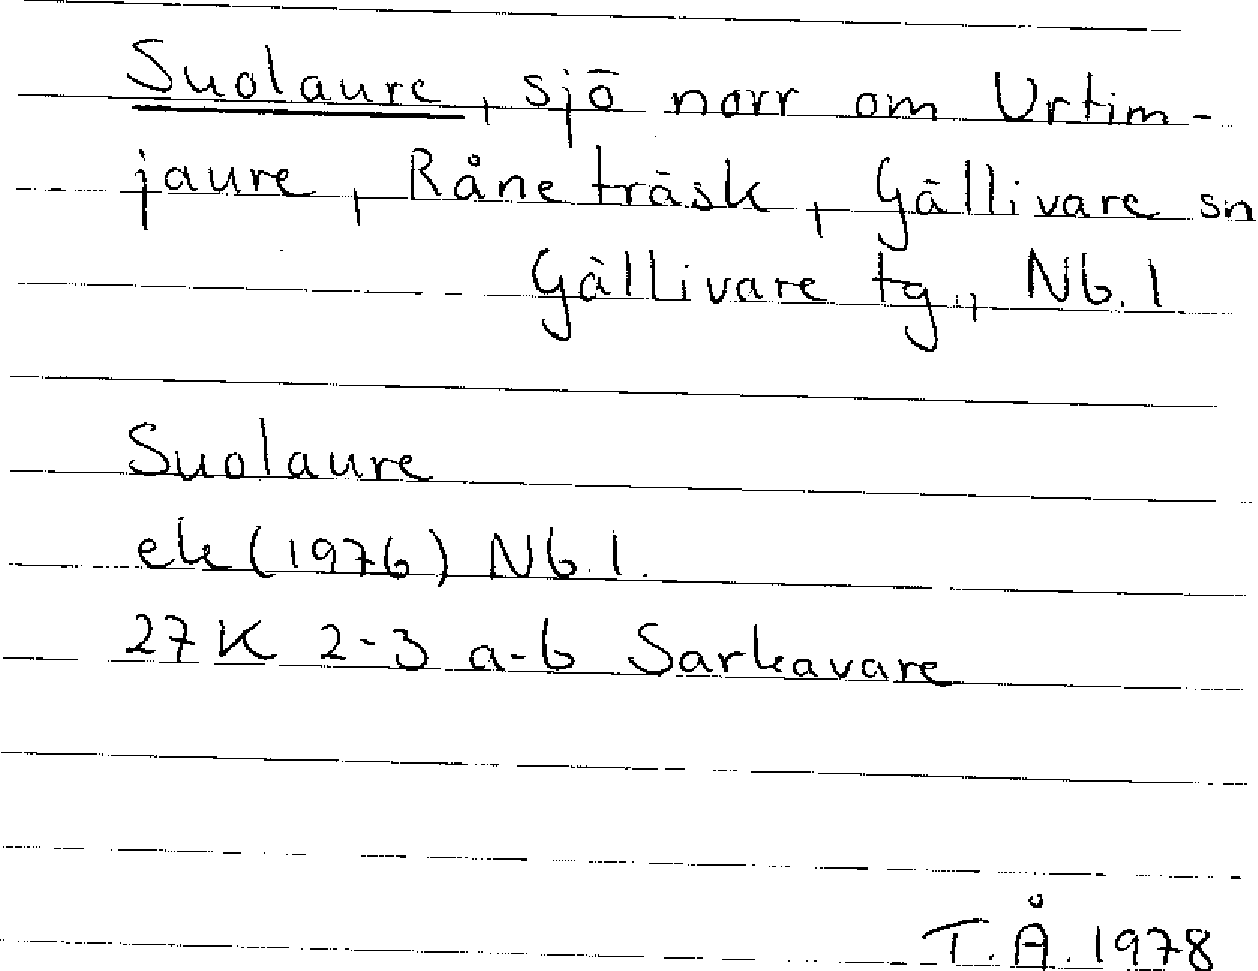 Suolaure, sjö norr om Urtim-
jaure, Råneträsk, Gällivare sn
Gällivare tg., Nb. l
Suolaure
ek (1976) Nb. l.
27 K 2-3 a-b Sarkavare
T. Å. 1978